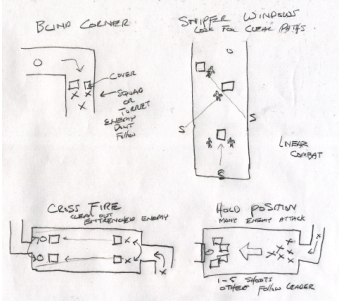 BLIND CORNER
COVER
SQUAD
OR
TURRET
ENEMY
DONT
FOLLOW
SNIPER WINDOWS
LOOK FOR CLEAR PATHS
S
S
S
LINEAR
COMBAT
CROSS FIRE
CLEAR OUT
ENTRENCHED ENEMY
HOLD POSITION
MANY ENEMY ATTACK
1-5 SHOOTS
OTHERS FOLLOW LEADER